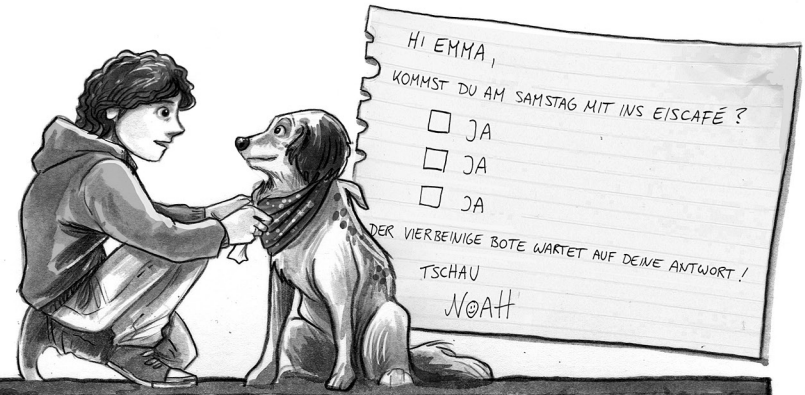 HI EMMA,
KOMMST DU AM SAMSTAG MIT INS EISCAFÉ?
JA
JA
JA
DER VIERBEINIGE BOTE WARTET AUF DEINE ANTWORT!
TSCHAU
NOAH